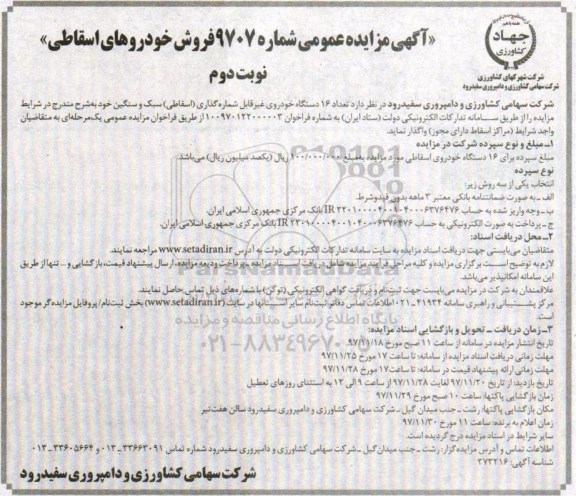 جهاد
کشاورزی
شرکت شهرکهای کشاورزی
شرکت سهامی کشاورزی و دامپروری سفیدرود
«آگهی مزایده عمومی شماره ۹۷۰۷ فروش خودروهای اسقاطی»
نوبت دوم
شرکت سهامی کشاورزی و دامپروری سفیدرود در نظر دارد تعداد ۱۶ دستگاه خودروی غیرقابل شماره گذاری (اسقاطی) سبک و سنگین خود به شرح مندرج در شرایط
مزایده را از طریق سامانه تدارکات الکترونیکی دولت (ستاد ایران) به شماره فراخوان ۱۰۰۹۷۰۱۲۲۰۰۰۰۰۲ از طریق فراخوان مزایده عمومی یک مرحله‌ای به متقاضیان
واجد شرایط (مراکز اسقاط دارای مجوز) واگذار نماید.
۱ـ مبلغ و نوع سپرده شرکت در مزایده
مبلغ سپرده برای ۱۶ دستگاه خودروی اسقاطی مورد مزایده به مبلغ ۱۰۰/۰۰۰/۰۰۰ ریال (یکصد میلیون ریال) می‌باشد.
نوع سپرده
انتخاب یکی از سه روش زیر:
الف ـ به صورت ضمانتنامه بانکی معتبر ۳ ماهه بدون قیدوشرط.
ب ـ وجه واریز شده به حساب IR ۲۲۰۱۰۰۰۰۴۰۰۱۰۴۰۰۰۶۳۷۶۴۷۶ بانک مرکزی جمهوری اسلامی ایران
ج ـ پرداخت به صورت الکترونیکی به حساب IR ۲۲۰۱۰۰۰۰۴۰۰۱۰۴۰۰۰۶۳۷۶۴۷۶ بانک مرکزی جمهوری اسلامی ایران.
۲ـ محل دریافت اسناد:
متقاضیان می‌بایستی جهت دریافت اسناد مزایده به سایت سامانه تدارکات الکترونیکی دولت به آدرس www.setadiran.ir مراجعه نمایند.
لازم به توضیح است برگزاری مزایده و کلیه مراحل فرآیند مزایده شامل دریافت اسناد مزایده، پرداخت ودیعه مزایده، ارسال پیشنهاد قیمت، بازگشایی و ... تنها از طریق
این سامانه امکانپذیر می‌باشد.
علاقمندان به شرکت در مزایده می‌بایست جهت ثبت‌نام و دریافت گواهی الکترونیکی (توکن) با شماره‌های ذیل تماس حاصل نمایند.
مرکز پشتیبانی و راهبری سامانه ۴۱۹۳۴-۰۲۱ اطلاعات تماس دفاتر ثبت‌نام سایر استانها در سایت (www.setadiran.ir) بخش ثبت‌نام/ پروفایل مزایده‌گر موجود
است.
۳ـ زمان دریافت ـ تحویل و بازگشایی اسناد مزایده:
تاریخ انتشار مزایده در سامانه: از ساعت ۱۱ صبح مورخ ۹۷/۱۱/۱۸
مهلت زمانی دریافت اسناد مزایده از سامانه: تا ساعت ۱۷ مورخ ۹۷/۱۱/۲۵
مهلت زمانی ارائه پیشنهاد قیمت در سامانه: تا ساعت ۱۷ مورخ ۹۷/۱۱/۲۸
تاریخ بازدید: از تاریخ ۹۷/۱۱/۲۰ لغایت ۹۷/۱۱/۲۸ از ساعت ۹ الی ۱۲ به استثنای روزهای تعطیل
زمان بازگشایی پاکتها: ساعت ۱۰ صبح مورخ ۹۷/۱۱/۲۹
مکان بازگشایی پاکتها: رشت ـ جنب میدان گیل ـ شرکت سهامی کشاورزی و دامپروری سفیدرود سالن هفت‌تیر
زمان اعلام به برنده: ساعت ۱۱ مورخ ۹۷/۱۱/۳۰
سایر شرایط در اسناد مزایده درج گردیده است.
اطلاعات تماس و آدرس مزایده‌گزار: رشت ـ جنب میدان گیل ـ شرکت سهامی کشاورزی و دامپروری سفیدرود شماره تماس ۳۳۶۶۳۰۹۱-۰۱۳ و ۳۳۶۰۵۶۶۴-۰۱۳
شناسه آگهی: ۳۷۳۲۱۶
شرکت سهامی کشاورزی و دامپروری سفیدرود
ParsNamadData
پایگاه اطلاع رسانی مناقصه و مزایده
۰۲۱-۸۸۳۴۹۶۷۰